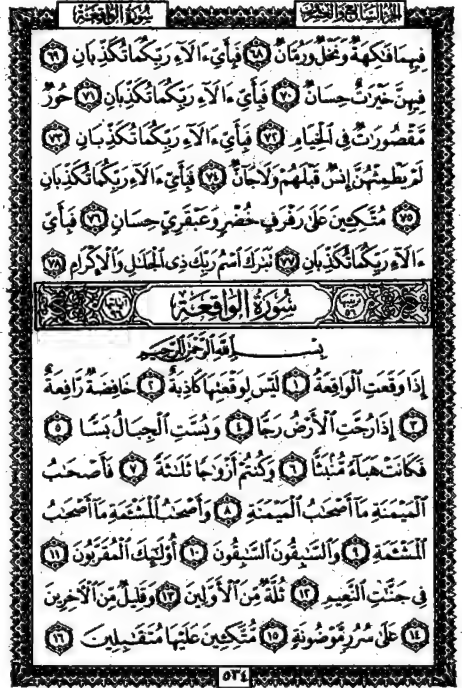 سُورَةُ الوَاقِعَةِ الجزء السابع والعشرون
فِيهِمَا فَٰكِهَةٌ وَنَخْلٌ وَرُمَّانٌ ٦٨ فَبِأَيِّ ءَالَآءِ رَبِّكُمَا تُكَذِّبَانِ ٦٩
فِيهِنَّ خَيْرَٰتٌ حِسَانٌ ٧٠ فَبِأَيِّ ءَالَآءِ رَبِّكُمَا تُكَذِّبَانِ ٧١ حُورٌ
مَّقْصُورَٰتٌ فِي ٱلْخِيَامِ ٧٢ فَبِأَيِّ ءَالَآءِ رَبِّكُمَا تُكَذِّبَانِ ٧٣
لَمْ يَطْمِثْهُنَّ إِنسٌ قَبْلَهُمْ وَلَا جَآنٌّ ٧٤ فَبِأَيِّ ءَالَآءِ رَبِّكُمَا تُكَذِّبَانِ
٧٥ مُتَّكِـِٔينَ عَلَىٰ رَفْرَفٍ خُضْرٍ وَعَبْقَرِيٍّ حِسَانٍ ٧٦ فَبِأَيِّ
ءَالَآءِ رَبِّكُمَا تُكَذِّبَانِ ٧٧ تَبَٰرَكَ ٱسْمُ رَبِّكَ ذِي ٱلْجَلَٰلِ وَٱلْإِكْرَامِ ٧٨
ترتيبها ٥٦ سُورَةُ الوَاقِعَةِ آياتها ٩٦
بِسْمِ ٱللَّهِ ٱلرَّحْمَٰنِ ٱلرَّحِيمِ
إِذَا وَقَعَتِ ٱلْوَاقِعَةُ ١ لَيْسَ لِوَقْعَتِهَا كَاذِبَةٌ ٢ خَافِضَةٌ رَّافِعَةٌ
٣ إِذَا رُجَّتِ ٱلْأَرْضُ رَجًّا ٤ وَبُسَّتِ ٱلْجِبَالُ بَسًّا ٥
فَكَانَتْ هَبَآءً مُّنۢبَثًّا ٦ وَكُنتُمْ أَزْوَٰجًا ثَلَٰثَةً ٧ فَأَصْحَٰبُ
ٱلْمَيْمَنَةِ مَآ أَصْحَٰبُ ٱلْمَيْمَنَةِ ٨ وَأَصْحَٰبُ ٱلْمَشْـَٔمَةِ مَآ أَصْحَٰبُ
ٱلْمَشْـَٔمَةِ ٩ وَٱلسَّٰبِقُونَ ٱلسَّٰبِقُونَ ١٠ أُو۟لَٰٓئِكَ ٱلْمُقَرَّبُونَ ١١
فِي جَنَّٰتِ ٱلنَّعِيمِ ١٢ ثُلَّةٌ مِّنَ ٱلْأَوَّلِينَ ١٣ وَقَلِيلٌ مِّنَ ٱلْءَاخِرِينَ
١٤ عَلَىٰ سُرُرٍ مَّوْضُونَةٍ ١٥ مُّتَّكِـِٔينَ عَلَيْهَا مُتَقَٰبِلِينَ ١٦
٥٣٤